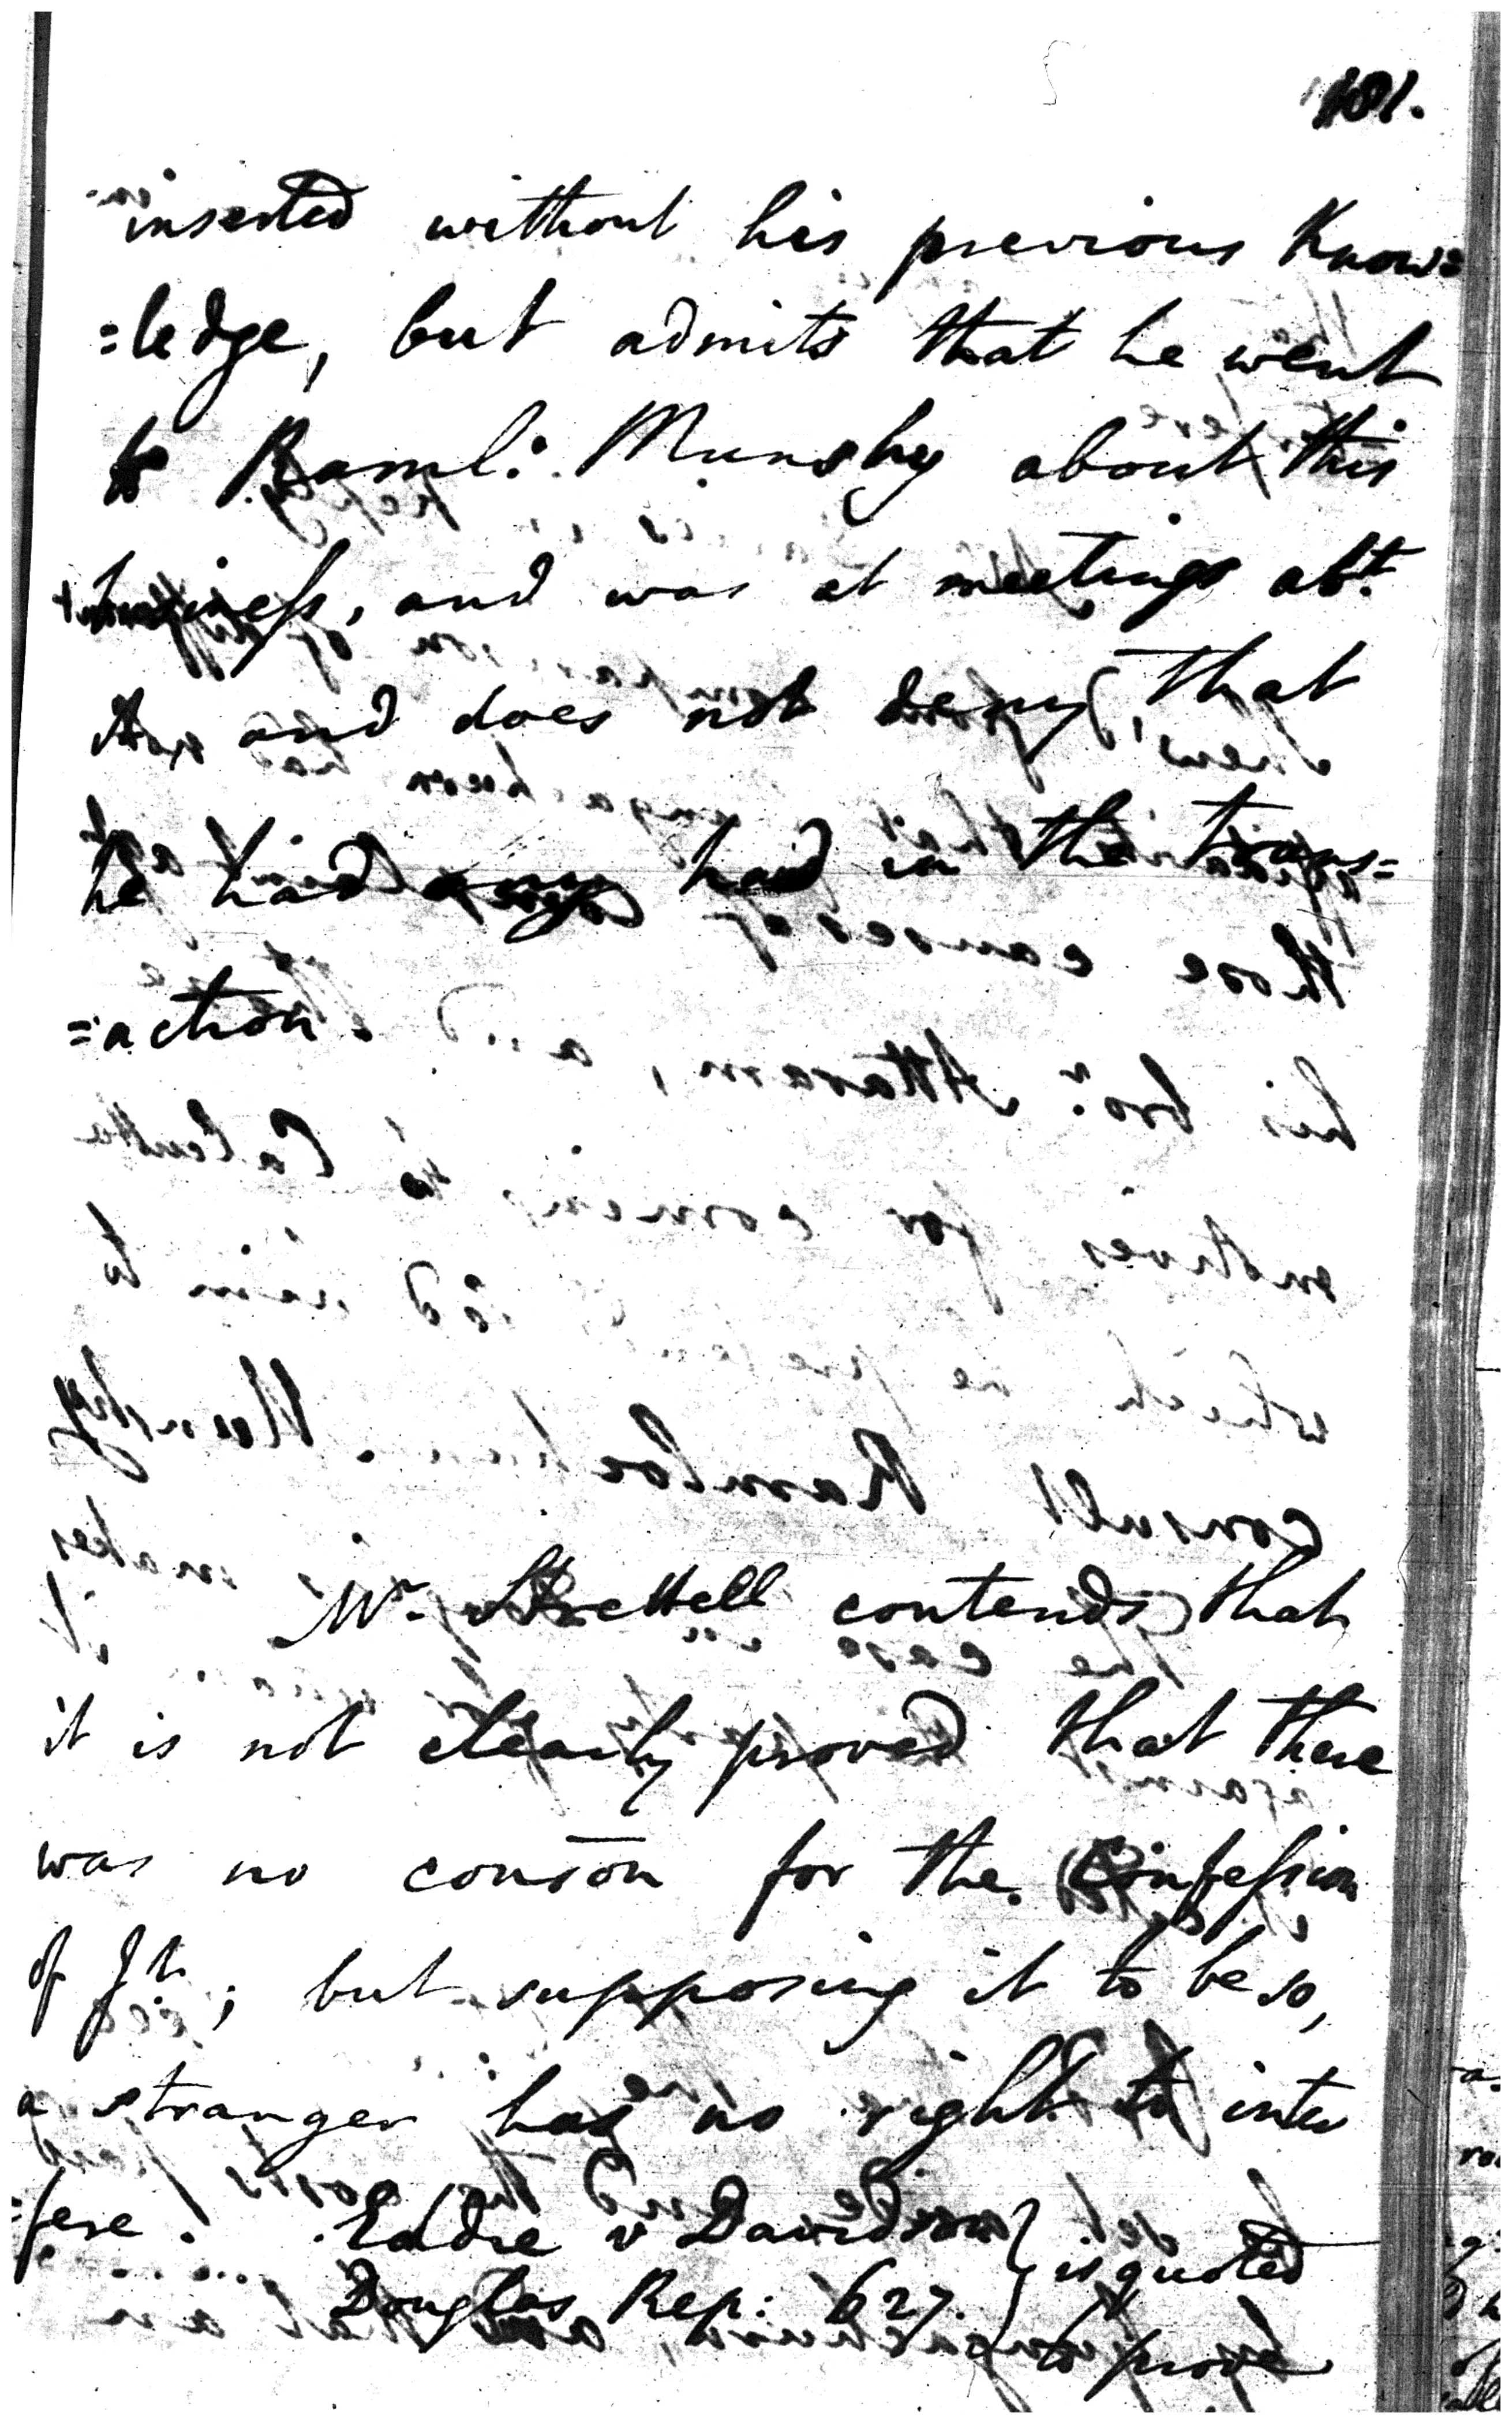 181.
inserted without his previous Know=
=ledge, but admits that he went
to Raml: Munshy about this
business, and was at meetings abt.
it, and does not deny, that
he had any had in the trans=
=action.
Mr. Strettell contends that
it is not clearly proved that there
was no conson for the Confession
of Jt.; but supposing it to be so,
a stranger has no right to inter
=fere. Eadie v Davidson } is quoted
Douglas Rep: 627. } to prove